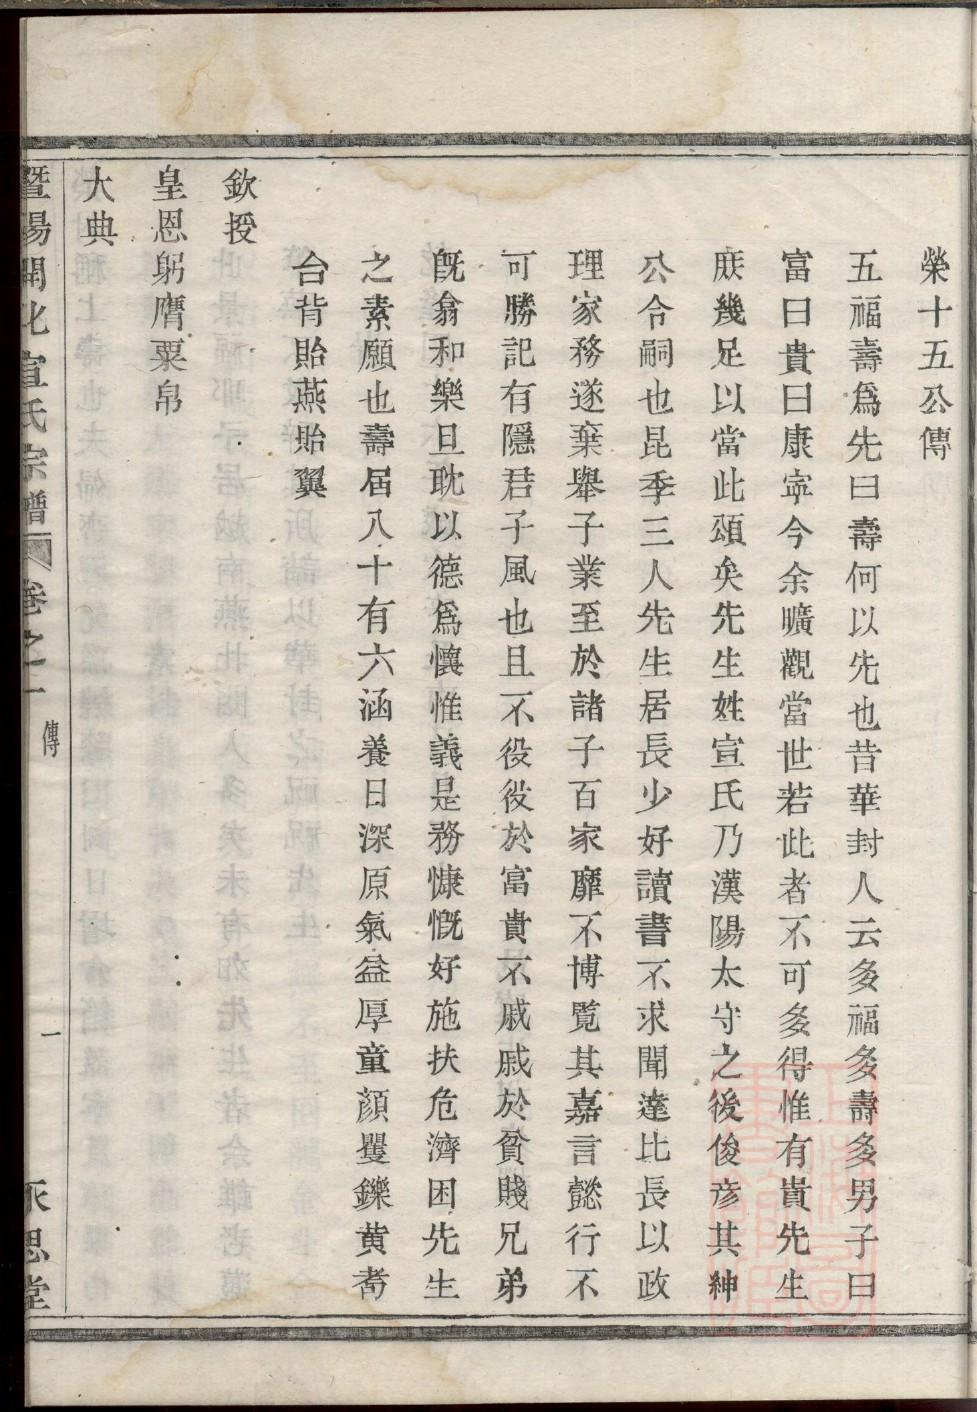 榮十五公傳
五福壽爲先曰壽何以先也昔華封人云多福多壽多男子曰
富曰貴曰康寧今余曠觀當世若此者不可多得惟有貴先生
庻幾足以當此頌矣先生姓宣氏乃漢陽太守之後俊彦其紳
公令嗣也昆季三人先生居長少好讀書不求聞達比長以政
理家務遂棄舉子業至於諸子百家靡不博覧其嘉言懿行不
可勝記有隱君子風也且不役役於富貴不戚戚於貧賤兄弟
旣翕和樂且耽以德爲懷惟義是務慷慨好施扶危濟困先生
之素願也壽届八十有六涵養日深原氣益厚童顔矍鑠黄耇
台背貽燕貽翼
欽授
皇恩躬膺粟帛
大典
暨陽開化宣氏宗譜 卷之一 傳 一 永思堂